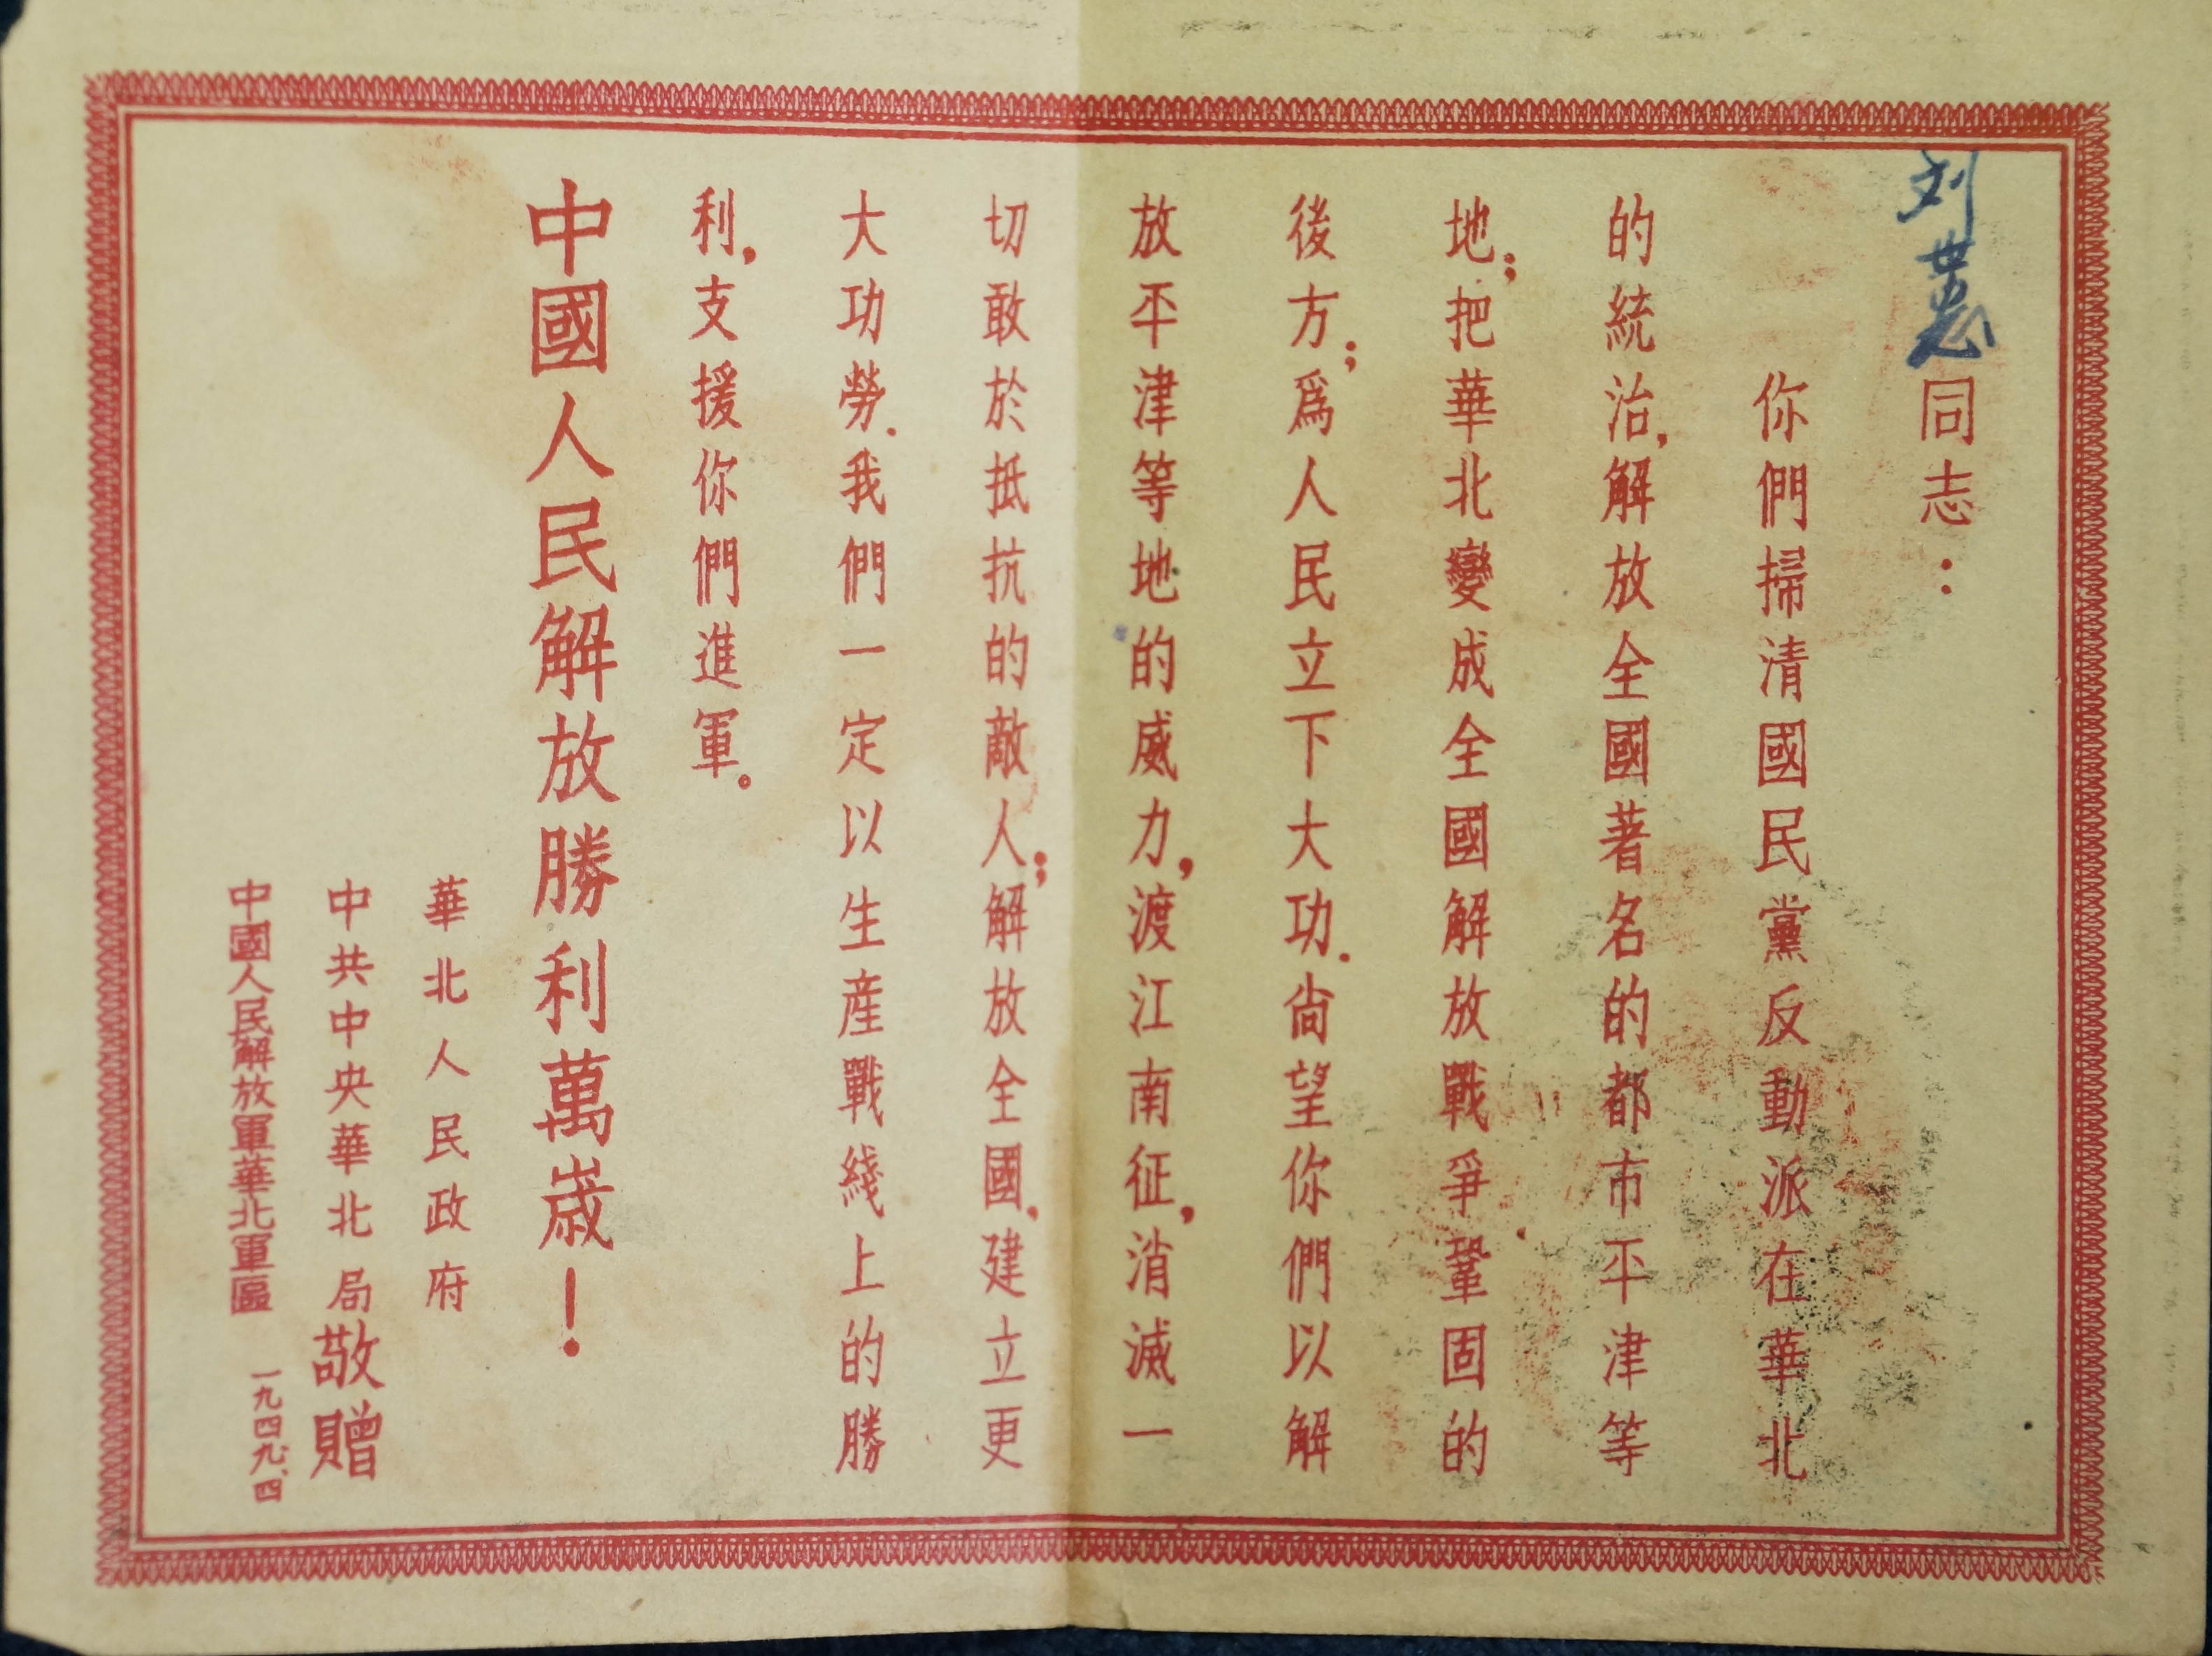 刘世忠同志：
你們掃清國民黨反動派在華北
的統治，解放全國著名的都市平津等
地；把華北變成全國解放戰爭鞏固的
後方；爲人民立下大功．尙望你們以解
放平津等地的威力，渡江南征，消滅一
切敢於抵抗的敵人；解放全國，建立更
大功勞．我們一定以生産戰綫上的勝
利，支援你們進軍。
中國人民解放勝利萬歲！
華北人民政府
中共中央華北局敬贈
中國人民解放軍華北軍區
一九四九、四